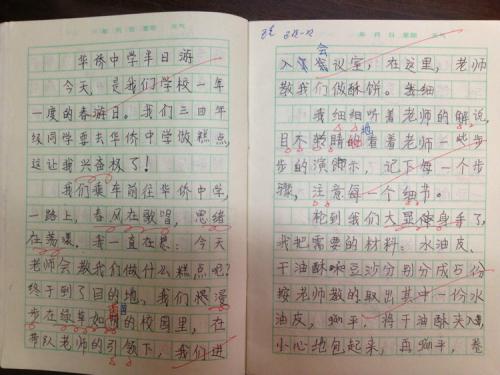 年 月 日 星期 天气
华侨中学半日游
今天，是我们学校一年
一度的春游日。我们三四年
级同学要去华侨中学做糕点，
这让我兴奋极了！
我们乘车前往华侨中学，
一路上，春风在歌唱，思绪
在荡漾。我一直在想：今天
老师会教我们做什么糕点呢？
终于到了目的地，我们慢漫
步在绿草如的校园里，在
带队老师的引领下，我们进
年 月 日 星期 天气
会
入议室，在这里，老师
教我们做酥饼。
我细细听着老师的解说，
地
目不转睛的看着老师一步
步的演示，记下每一个步
骤，注意每一个细节。
轮到我们大显身手了，
我把需要的材料：水油皮、
干油酥和豆沙分别分成5份
按老师教的取出其中一份水
油皮，平，将干油酥夹入
小心地包起来，再平，卷